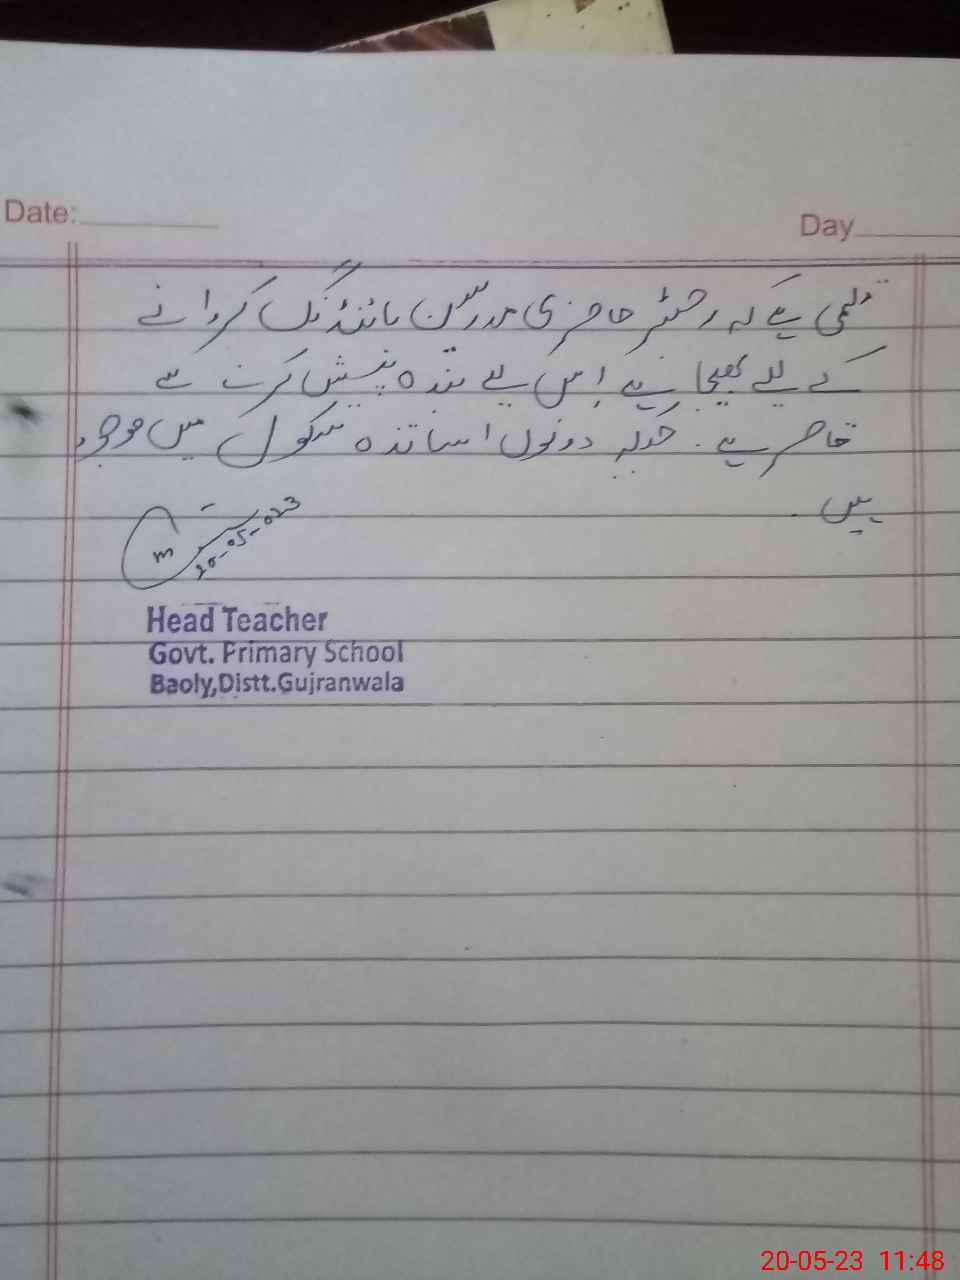 Date:
Day
قلمی ہے کہ رجسٹر حاضری مدرسین بائنڈنگ کروانے
کے لیے بھیجا ہے اس لیے بندہ پیش کرنے سے
قاصر ہے. جبکہ دونوں اساتذہ سکول میں موجود
ہیں
20-05-023
Head Teacher
Govt. Primary School
Baoly,Distt.Gujranwala
20-05-23 11:48